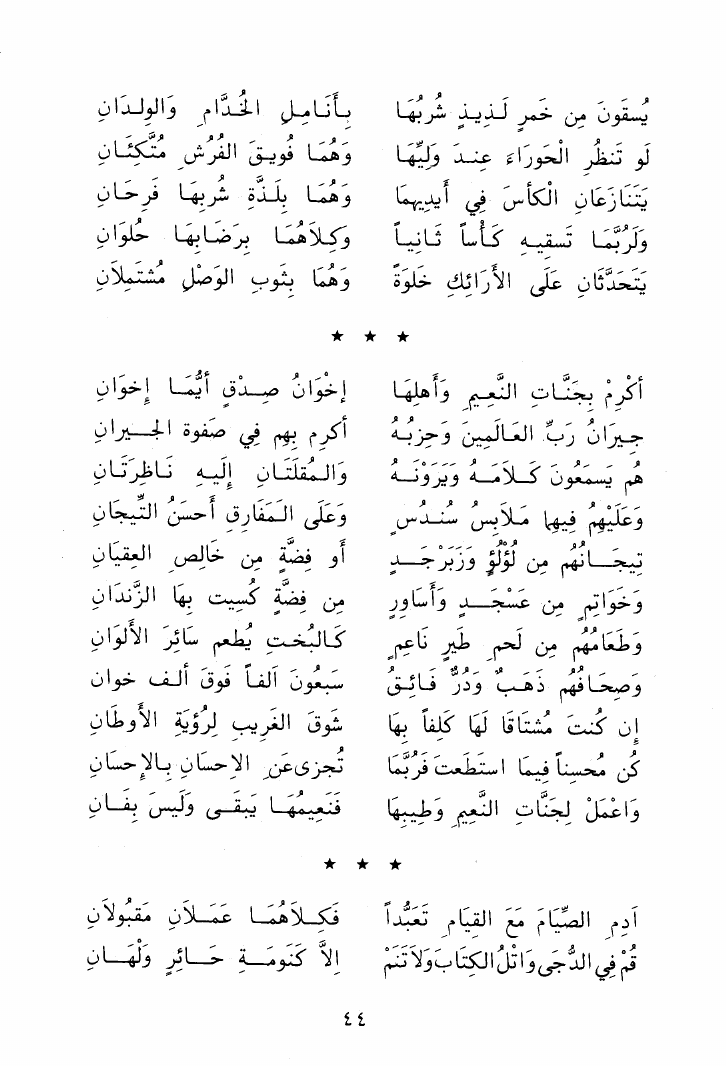 يُسقَونَ مِن خَمرٍ لَذِيذٍ شُربُهَا بِأَنَامِلِ الخُدَّامِ وَالوِلدَانِ
لَو تَنظُرِ الحَورَاءَ عِندَ وَلِيِّهَا وَهُمَا فُوَيقَ الفُرشِ مُتَّكِئَانِ
يَتَنَازَعَانِ الكَأسَ فِي أَيدِيهِمَا وَهُمَا بِلَذَّةِ شُربِهَا فَرِحَانِ
وَلَرُبَّمَا تَسقِيهِ كَأساً ثَانِياً وَكِلاَهُمَا بِرُضَابِهَا حُلوَانِ
يَتَحَدَّثَانِ عَلَى الأَرَائِكِ خَلوَةً وَهُمَا بِثَوبِ الوَصْلِ مُشتَمِلاَنِ
★ ★ ★
أَكرِمْ بِجَنَّاتِ النَّعِيمِ وَأَهلِهَا إِخْوَانُ صِدْقٍ أَيُّمَا إِخوَانِ
جِيرَانُ رَبِّ العَالَمِينَ وَحِزبُهُ أَكرِم بِهِم فِي صَفوَةِ الجِيرانِ
هُم يَسمَعُونَ كَلاَمَهُ وَيَرَوْنَهُ وَالمُقلَتَانِ إِلَيهِ نَاظِرَتَانِ
وَعَلَيْهِمُ فِيهَا مَلاَبِسُ سُندُسٍ وَعَلَى المَفَارِقِ أَحسَنُ التِّيجَانِ
تِيجَانُهُم مِن لُؤلُؤٍ وَزَبَرجَدٍ أَو فِضَّةٍ مِن خَالِصِ العِقيَانِ
وَخَوَاتِمٍ مِن عَسْجَدٍ وَأَسَاوِرٍ مِن فِضَّةٍ كُسِيَت بِهَا الزَّندَانِ
وَطَعَامُهُم مِن لَحمِ طَيرٍ نَاعِمٍ كَالبُختِ يُطعِم سَائِرَ الأَلوَانِ
وَصِحَافُهُم ذَهَبٌ وَدُرٌّ فَائِقٌ سَبعُونَ أَلفاً فَوقَ أَلفِ خوانِ
إِن كُنتَ مُشتَاقاً لَهَا كَلِفاً بِهَا شَوقَ الغَرِيبِ لِرُؤيَةِ الأَوطَانِ
كُن مُحسِناً فِيمَا استَطَعتَ فَرُبَّمَا تُجزَى عَنِ الاحسَانِ بِالإِحسَانِ
وَاعْمَلْ لِجَنَّاتِ النَّعِيمِ وَطِيبِهَا فَنَعِيمُهَا يَبقَى وَلَيسَ بِفَانِ
★ ★ ★
أَدِمِ الصِّيَامَ مَعَ القِيَامِ تَعَبُّداً فَكِلاَهُمَا عَمَلاَنِ مَقبُولاَنِ
قُمْ فِي الدُّجَى وَاتْلُ الكِتَابَ وَلاَ تَنَمْ إِلاَّ كَنَومَةِ حَائِرٍ وَلْهَانِ
٤٤